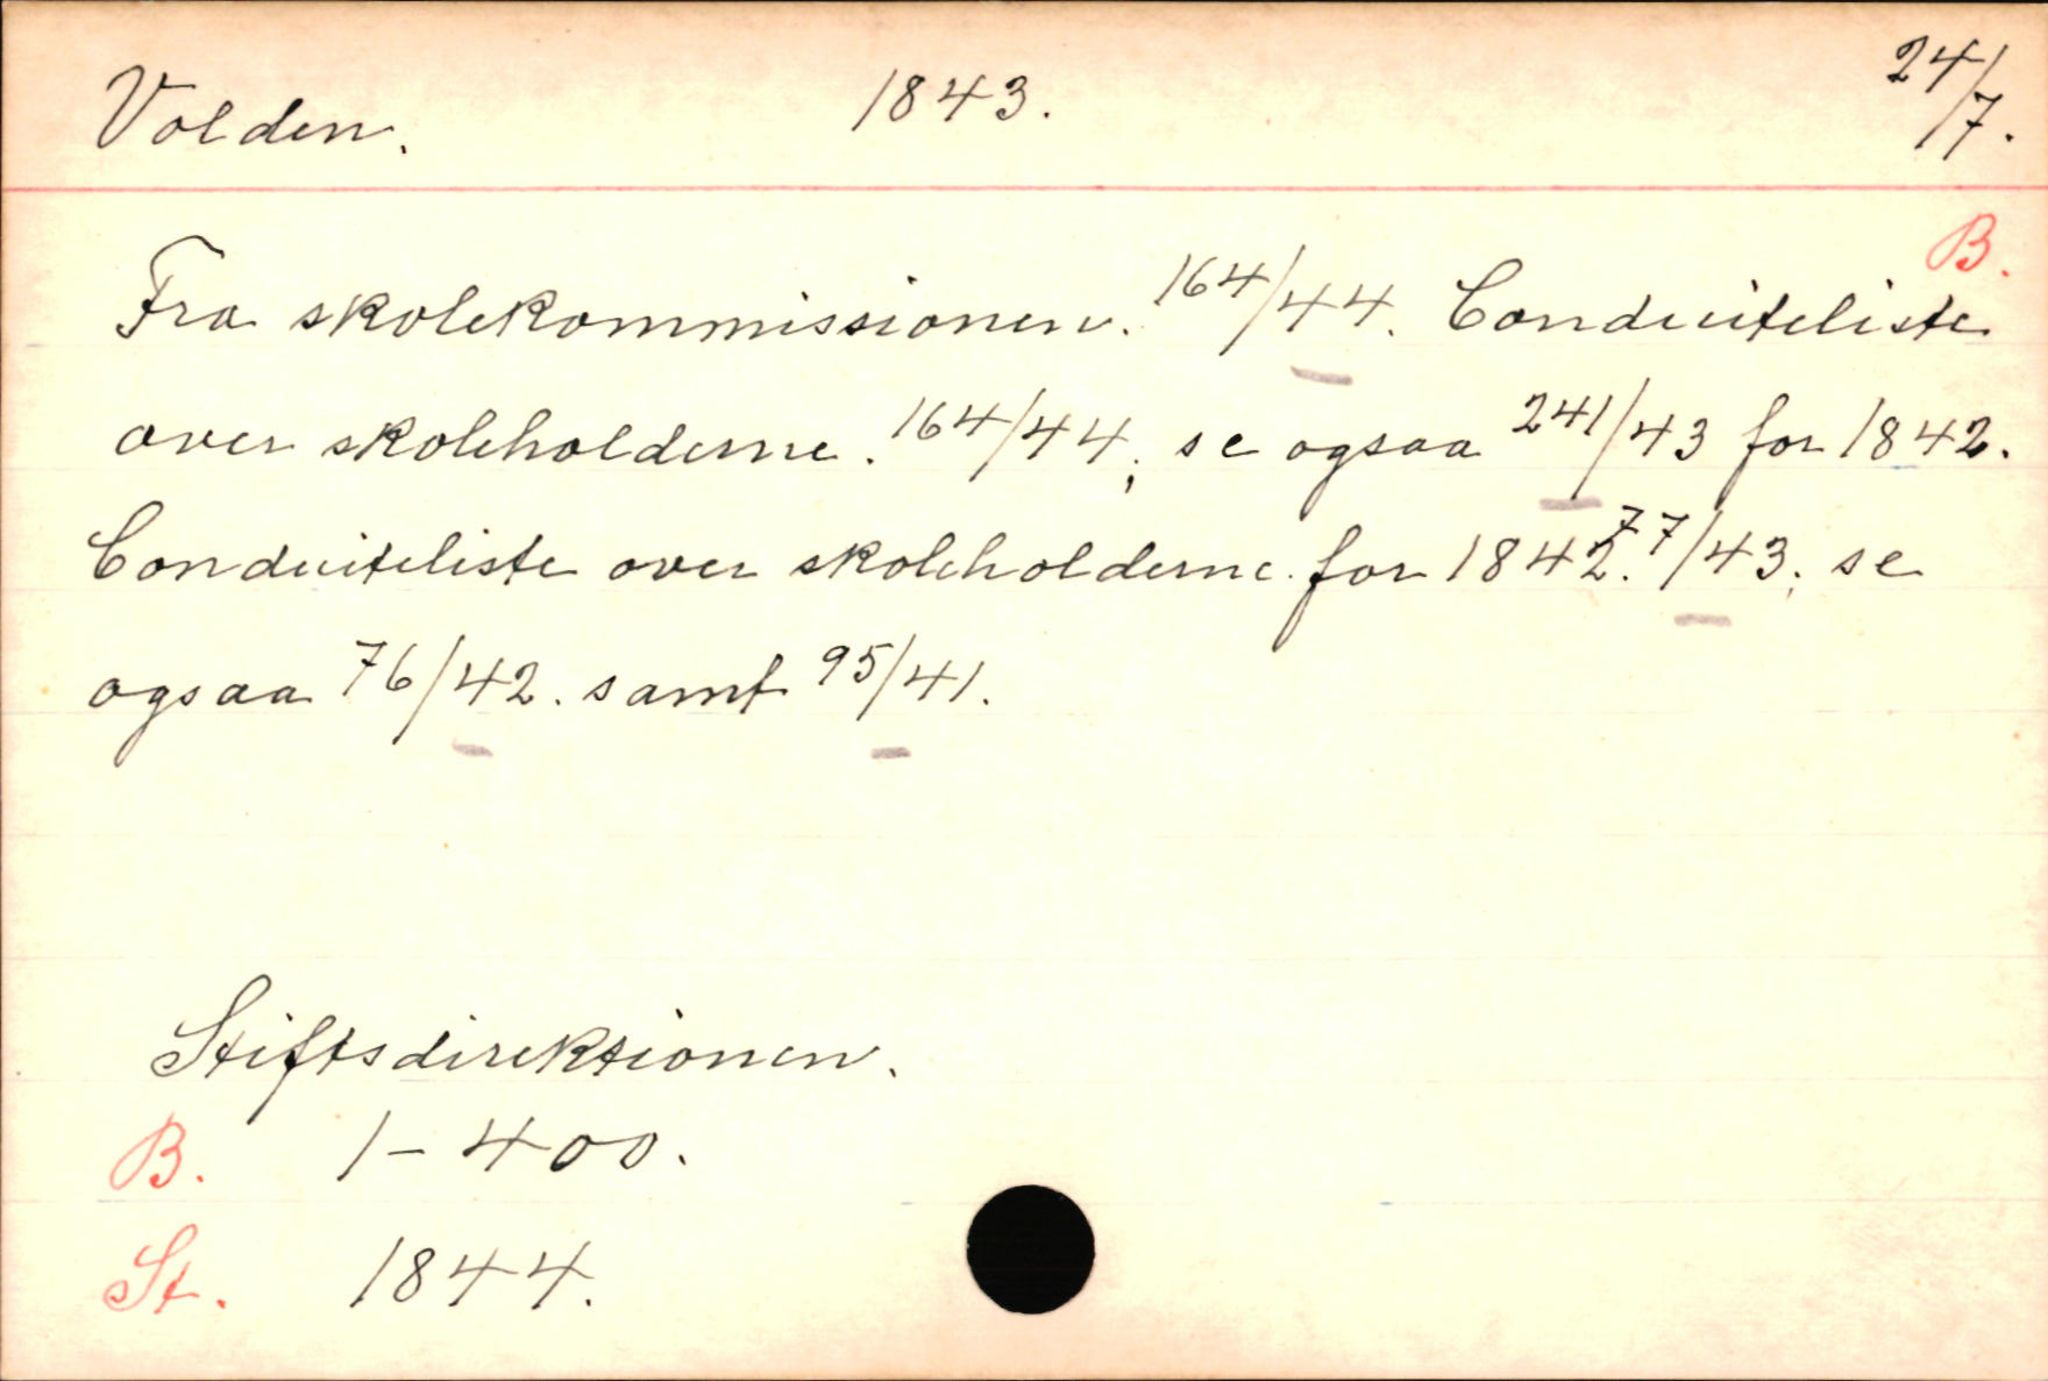 Volden. 1843. 24/7.
B.
Fra skolekommissionen. 164/44. Conduiteliste
over skoleholderne. 164/44; se ogsaa 241/43 for 1842.
Conduiteliste over skoleholderne for 1842. 77/43; se
ogsaa 76/42. samt 95/41.
Stiftsdirektionen.
B. 1-400.
St. 1844.